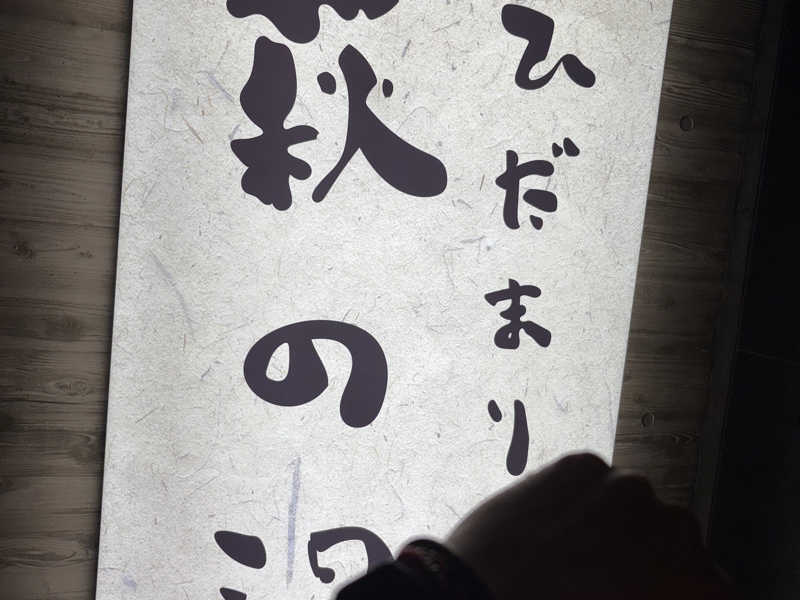 ひだまり
萩の